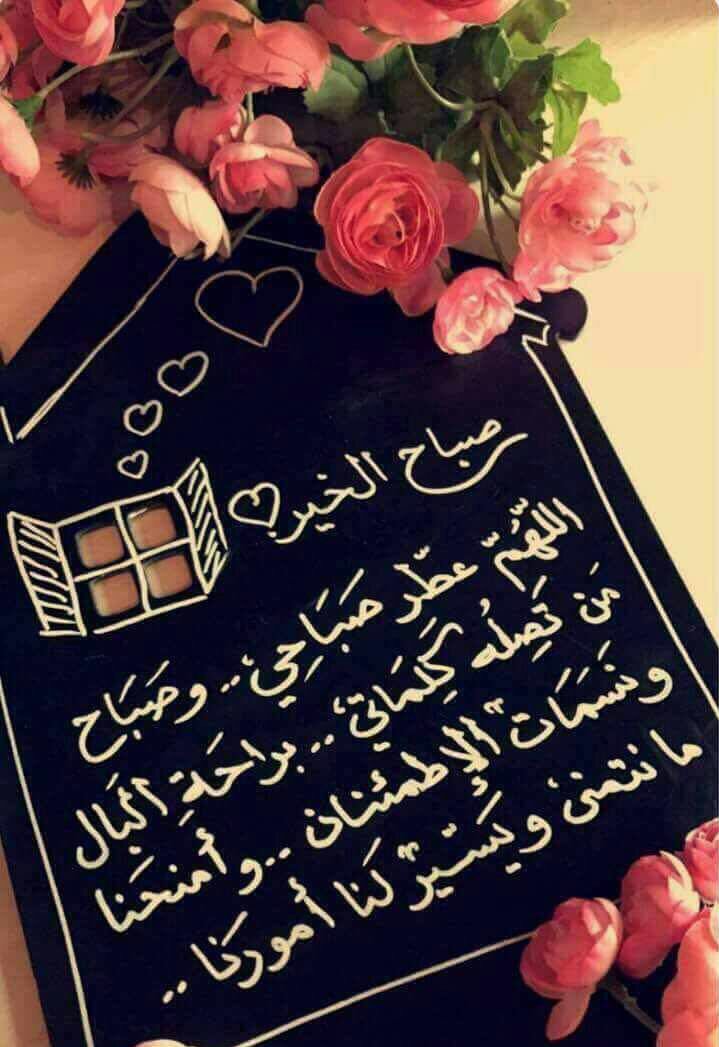 صباح الخير
اللَّهُمّ عطّر صَبَاحِي.. وصَبَاح
مَن تَصِلُه كَلِمَاتي.. براحَةِ البَال
ونَسَمَات الإطمئنان.. وأمنحَنا
ما نتمنى ويَسّيرْ لنا أمورنا..